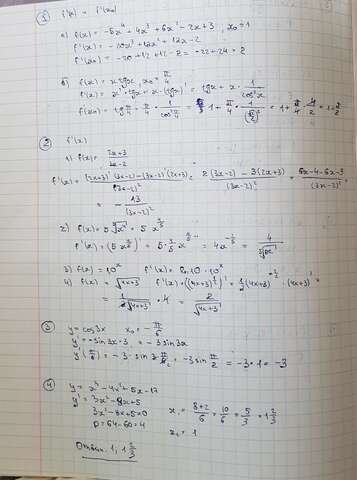 ① f'(x) = f'(x₀)
а) f(x) = -5x⁴ + 4x³ + 6x² - 2x + 3, x₀ = 1
f'(x) = -20x³ + 12x² + 12x - 2
f'(x₀) = -20 + 12 + 12 - 2 = -22 + 24 = 2
б) f(x) = x tgx, x₀ = π/4
f'(x) = x' tgx + x · (tgx)' = tgx + x · 1/cos²x
f(x₀) = tg π/4 + π/4 · 1/cos² π/4 = 1 + π/4 · 1/(√2/2)² = 1 + π/4 · 4/2 = 1 + π/2
② f'(x)
1) f(x) = (2x+3)/(3x-2)
f'(x) = ((2x+3)'(3x-2) - (3x-2)'(2x+3))/(3x-2)² = (2(3x-2) - 3(2x+3))/(3x-2)² = (6x-4-6x-9)/(3x-2)² =
= - 13/(3x-2)²
2) f(x) = 5 ⁵√x⁴ = 5 x^(4/5)
f'(x) = (5x^(4/5))' = 5 · 4/5 x^(-1/5) = 4x^(-1/5) = 4/⁵√x
3) f(x) = 10ˣ f'(x) = ln 10 · 10ˣ
4) f(x) = √(4x+3) f'(x) = ((4x+3)^(1/2))' = 1/2 (4x+3)^(-1/2) · (4x+3)' =
= 1/(2√(4x+3)) · 4 = 2/√(4x+3)
③ y = cos3x x₀ = -π/6
y' = -sin3x · 3 = -3 sin3x
y'(π/6) = -3 · sin 3·π/6 = -3 sin π/2 = -3 · 1 = -3
④ y = x³ - 4x² + 5x - 17
y' = 3x² - 8x + 5
3x² - 8x + 5 = 0 x₁ = (8+2)/6 = 10/6 = 5/3 = 1 2/3
D = 64 - 60 = 4 x₂ = 1
Ответ: 1; 1 2/3